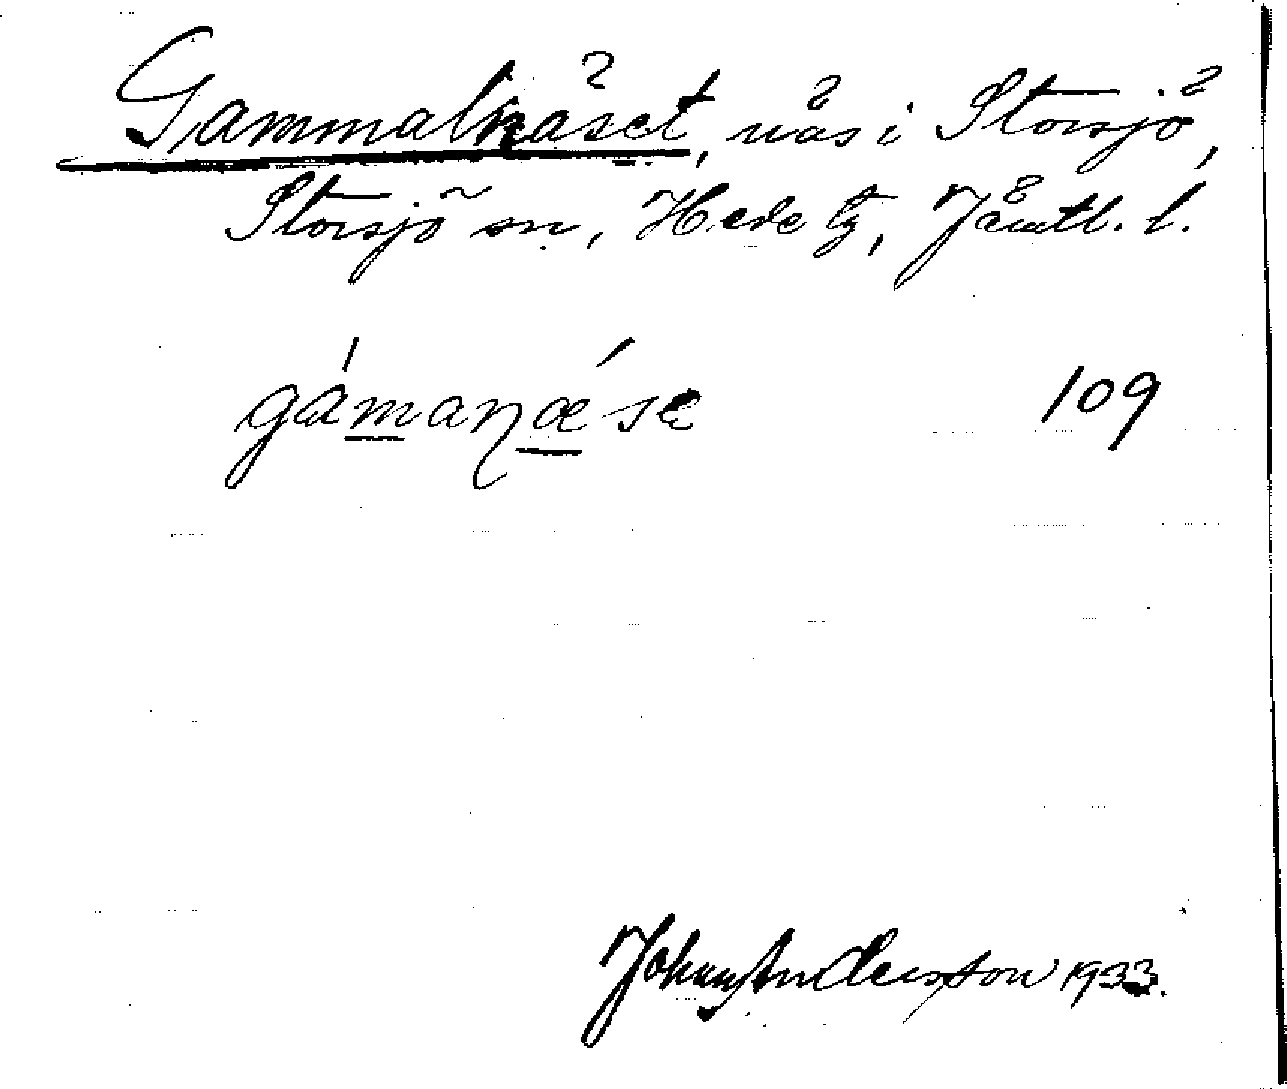 Gammalnäset, näs i Storsjö,
Storsjö sn, Hede tg, Jämtl. l.
gámaŋǽse 109
Johnny Andersson 1933.